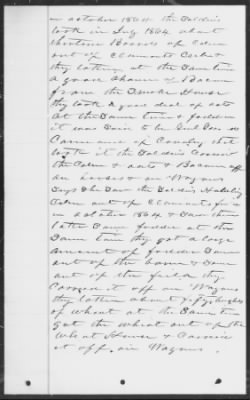 in October 1864 the Soldiers
took in July 1864 about
thirteen Barrels of Corn
out of Clements Crib &
they taken at the Same time
a good chance of Bacon
from the Smoke House
they took a good deal of oats
At the Same time & fodder
it was Said to be
Command of Cavalry that
took it the Soldiers Carried
the Corn & oats & Bacon off
on horses & in Wagons
Says She Saw the Soldiers Hauling
Corn out of Clements
in October 1864 & Saw them
take Some fodder at the
Same time they got a large
amount of fodder Some
out of the barn & Some
out of the field they
Carried it off in Wagons
they taken about fifty bushels
of wheat at the Same time
got the wheat out of the
Wheat House & Carried
it off in Wagons.